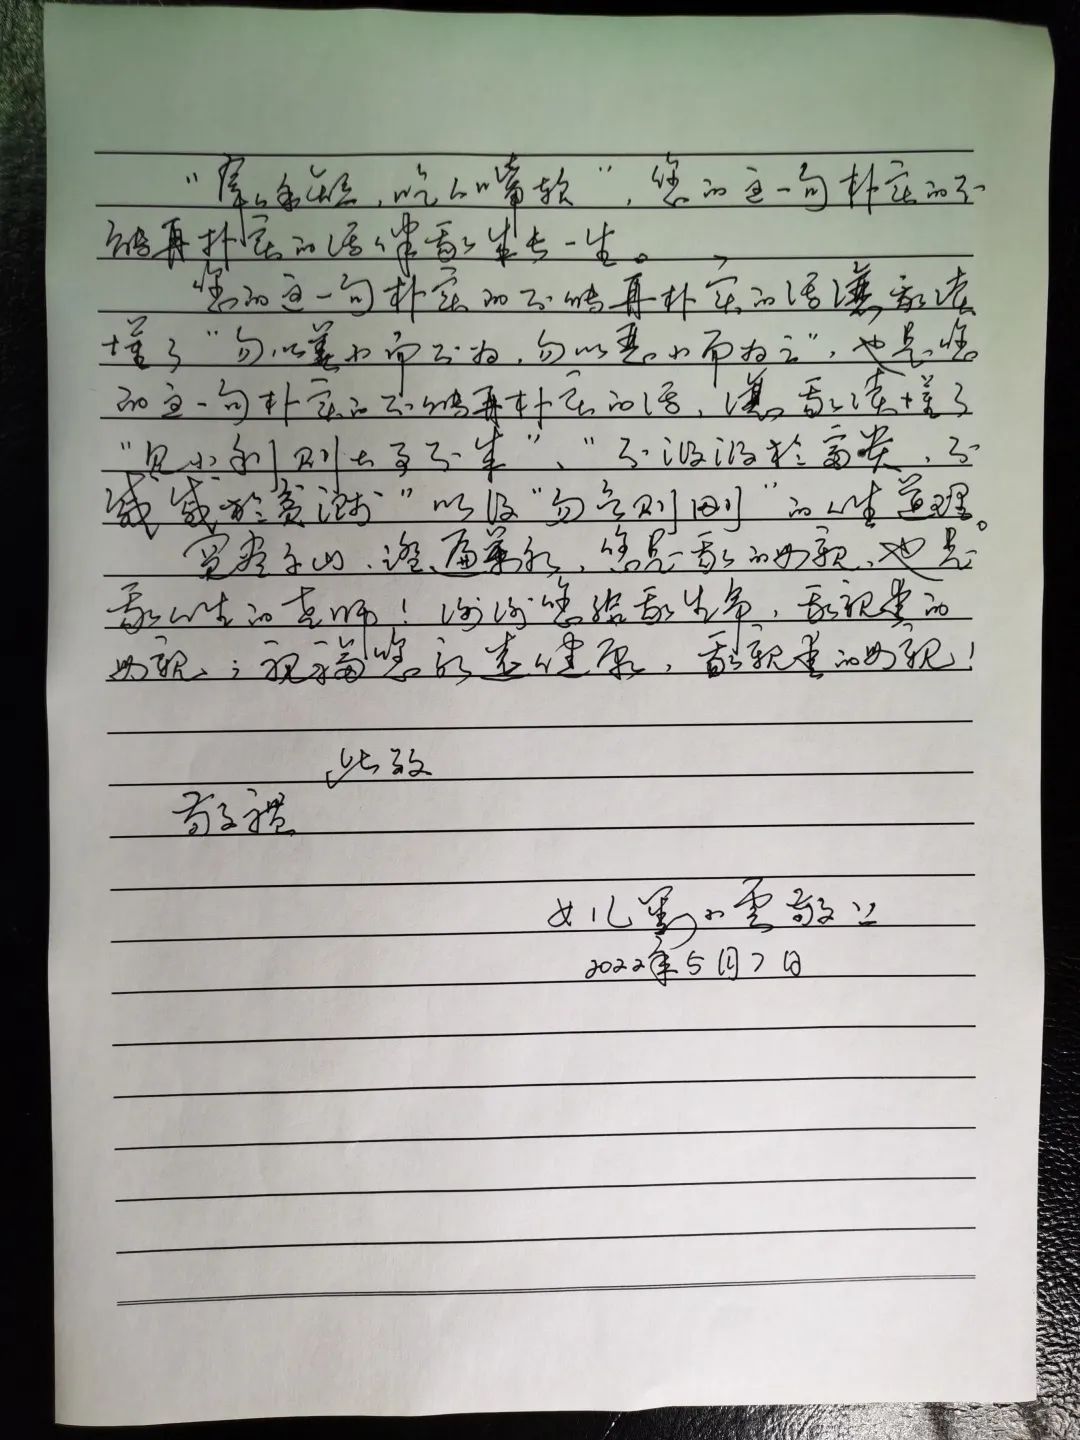 “拿人手短，吃人嘴软”，您的这一句朴实的不
能再朴实的话伴我成长一生。
您的这一句朴实的不能再朴实的话让我读
懂了“勿以善小而不为，勿以恶小而为之”，也是您
的这一句朴实的不能再朴实的话，让我读懂了
“见小利则大事不成”、“不汲汲於富贵，不
戚戚於贫贱”以及“勿欲则刚”的人生道理。
万水，您是我的母亲，也是
我人生的老师！谢谢您给我生命，我亲爱的
母亲；祝福您永远健康，我亲爱的母亲！
此致
敬禮
女儿劉小雲敬上
2022年5月7日